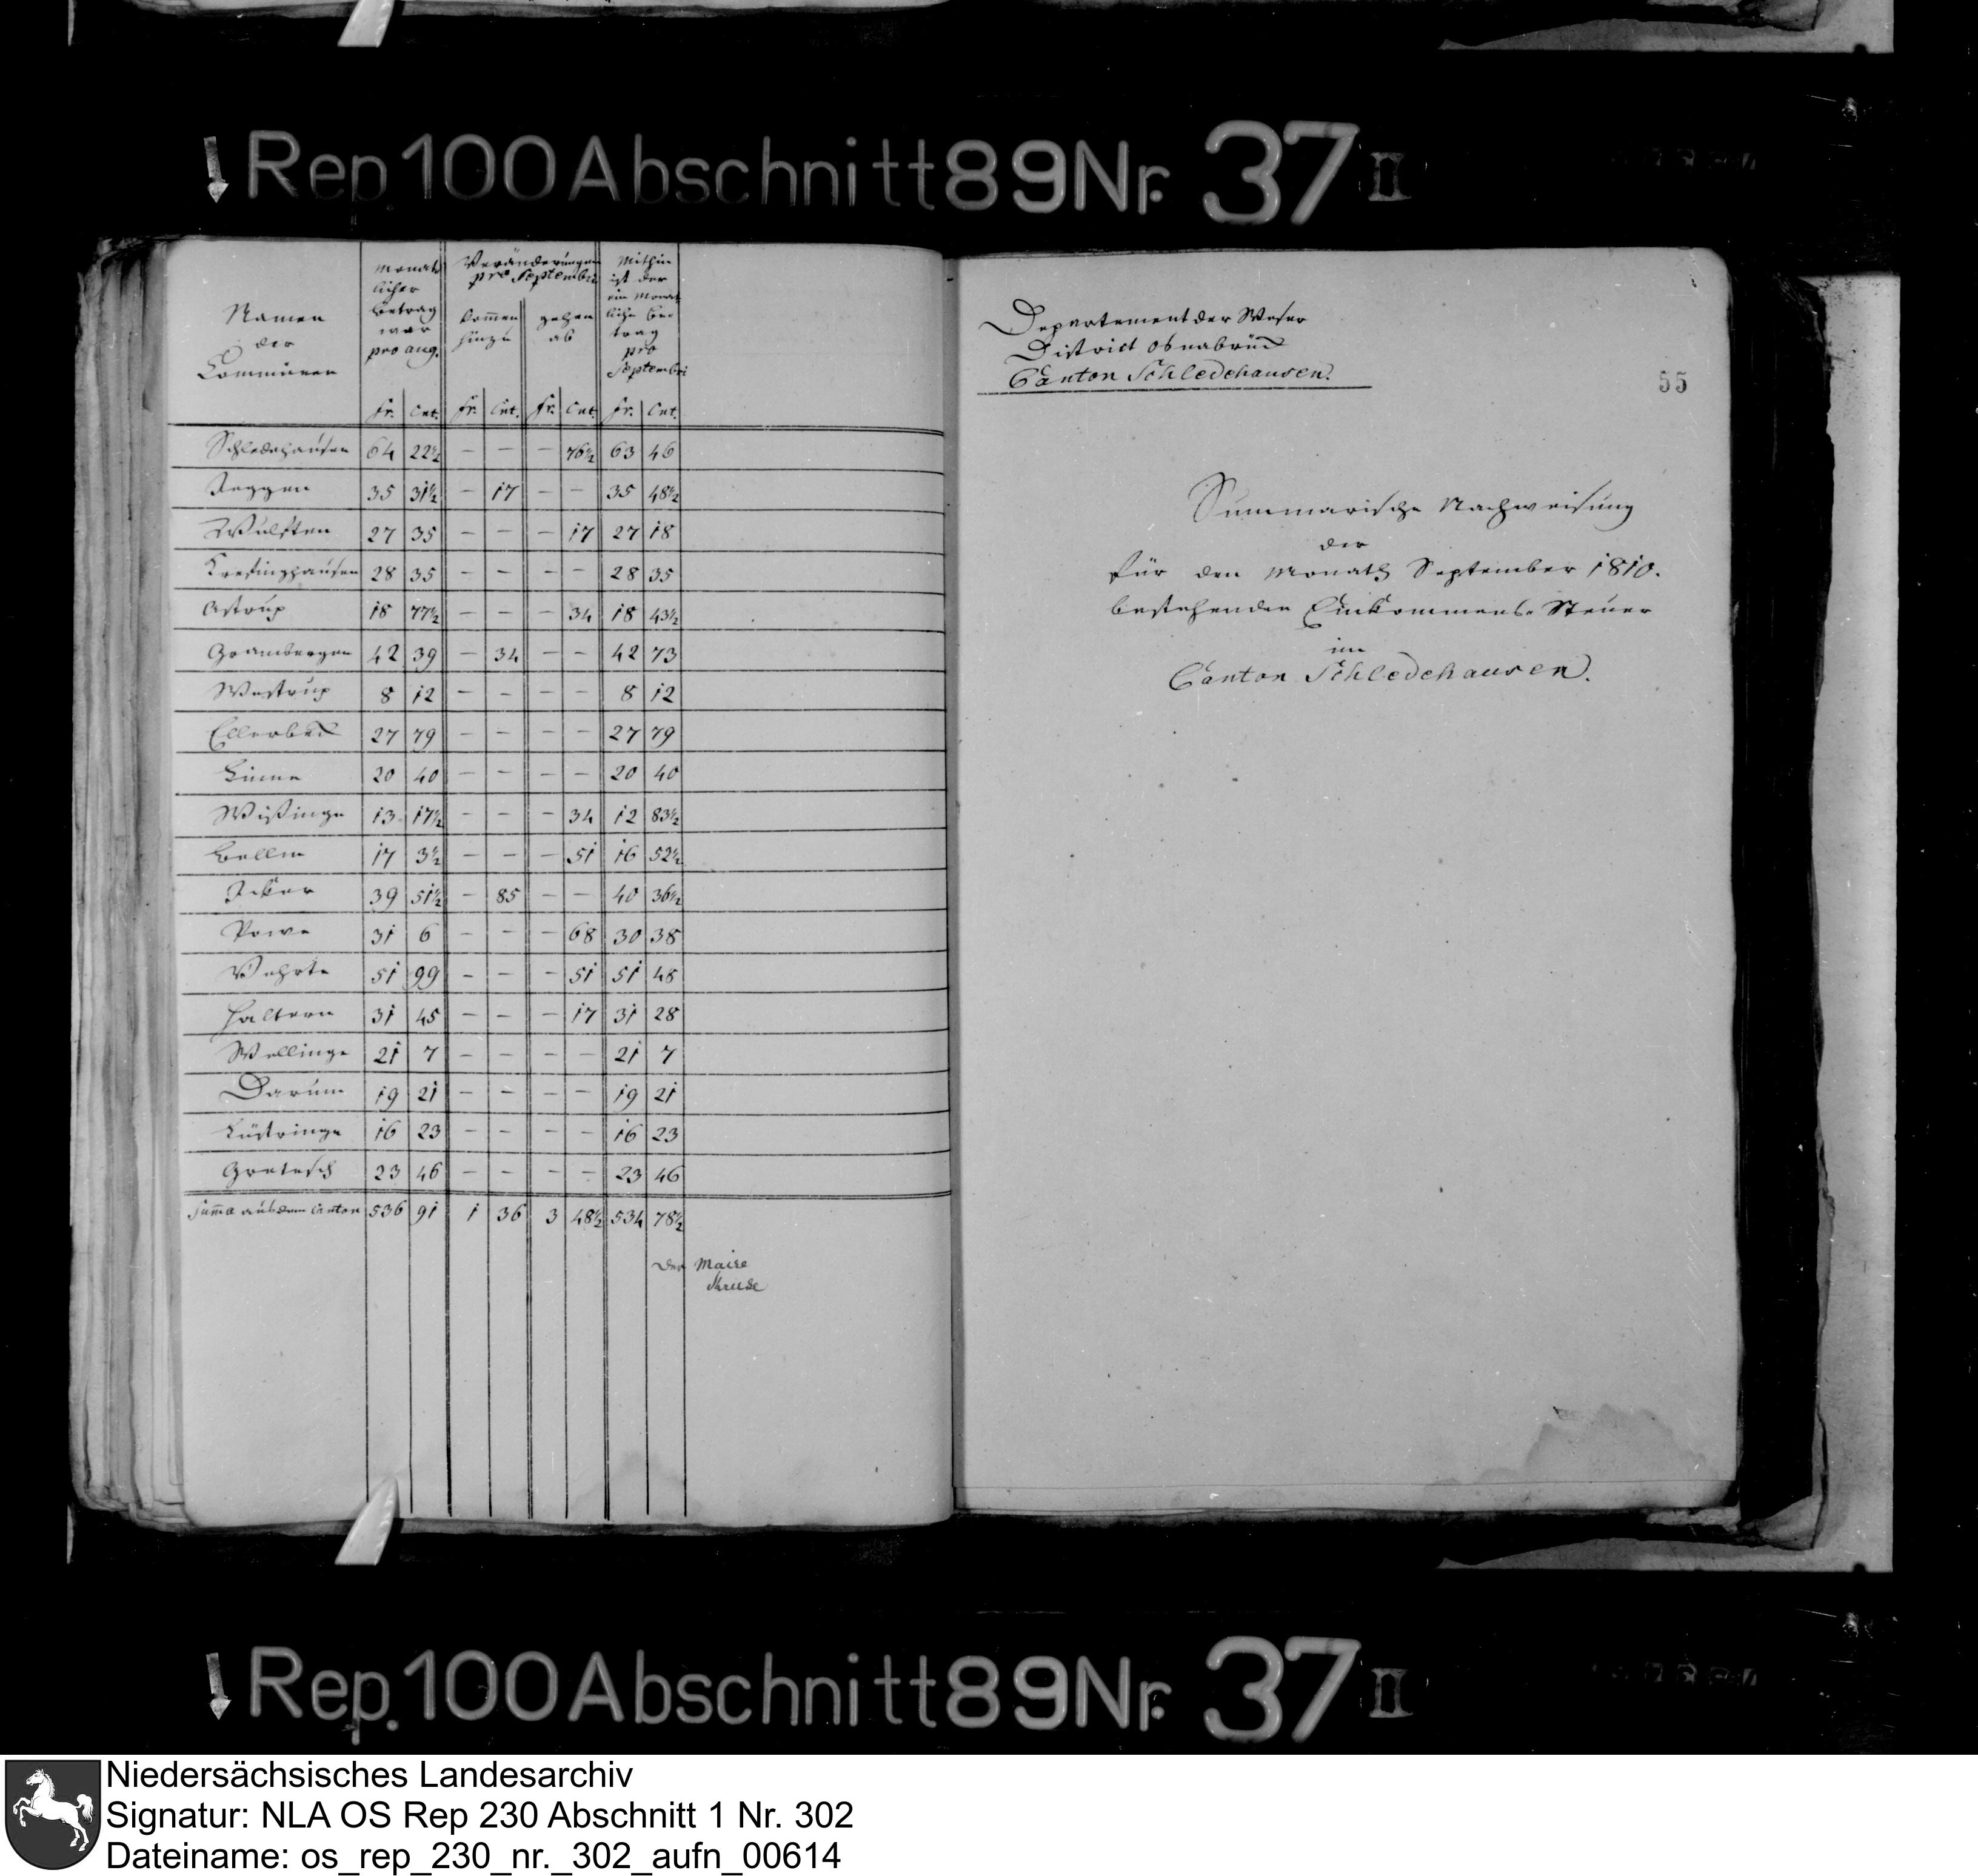 Rep. 100 Abschnitt 89 Nr. 37 II
Namen
der
Communen
Monat-
licher
Betrag
war
pro aug.
Veränderungen
pro September
kom̄en
hinzu
gehen
ab
Mithin
ist der
ein Monat-
liche Be-
trag
pro
September
fr. Cnt. fr. Cnt. fr. Cnt. fr. Cnt.
Schledehausen 64 22½ – – – 76½ 63 46
Jeggen 35 31½ – 17 – – 35 48½
Wulften 27 35 – – – 17 27 18
Krefinghausen 28 35 – – – – 28 35
Astrup 18 77½ – – – 34 18 43½
Grambergen 42 39 – 34 – – 42 73
Westrup 8 12 – – – – 8 12
Ellerbeck 27 79 – – – – 27 79
Linne 20 40 – – – – 20 40
Wißinge 13 17½ – – – 34 12 83½
Bellm 17 3½ – – – 51 16 52½
Icker 39 51½ – 85 – – 40 36½
Powe 31 6 – – – 68 30 38
Vehrte 51 99 – – – 51 51 48
Haltern 31 45 – – – 17 31 28
Wellinge 21 7 – – – – 21 7
Darum 19 21 – – – – 19 21
Lüstringe 16 23 – – – – 16 23
Gretesch 23 46 – – – – 23 46
Sum̄a aus dem Canton 536 91 1 36 3 48½ 534 78½
Der Maire
Kruse
Departement der Weser
District Osnabrück
Canton Schledehausen.
55
Summarische Nachweisung
der
für den Monath September 1810.
bestehenden Einkommens-Steuer
im
Canton Schledehausen.
Rep. 100 Abschnitt 89 Nr. 37 II
Niedersächsisches Landesarchiv
Signatur: NLA OS Rep 230 Abschnitt 1 Nr. 302
Dateiname: os_rep_230_nr._302_aufn_00614